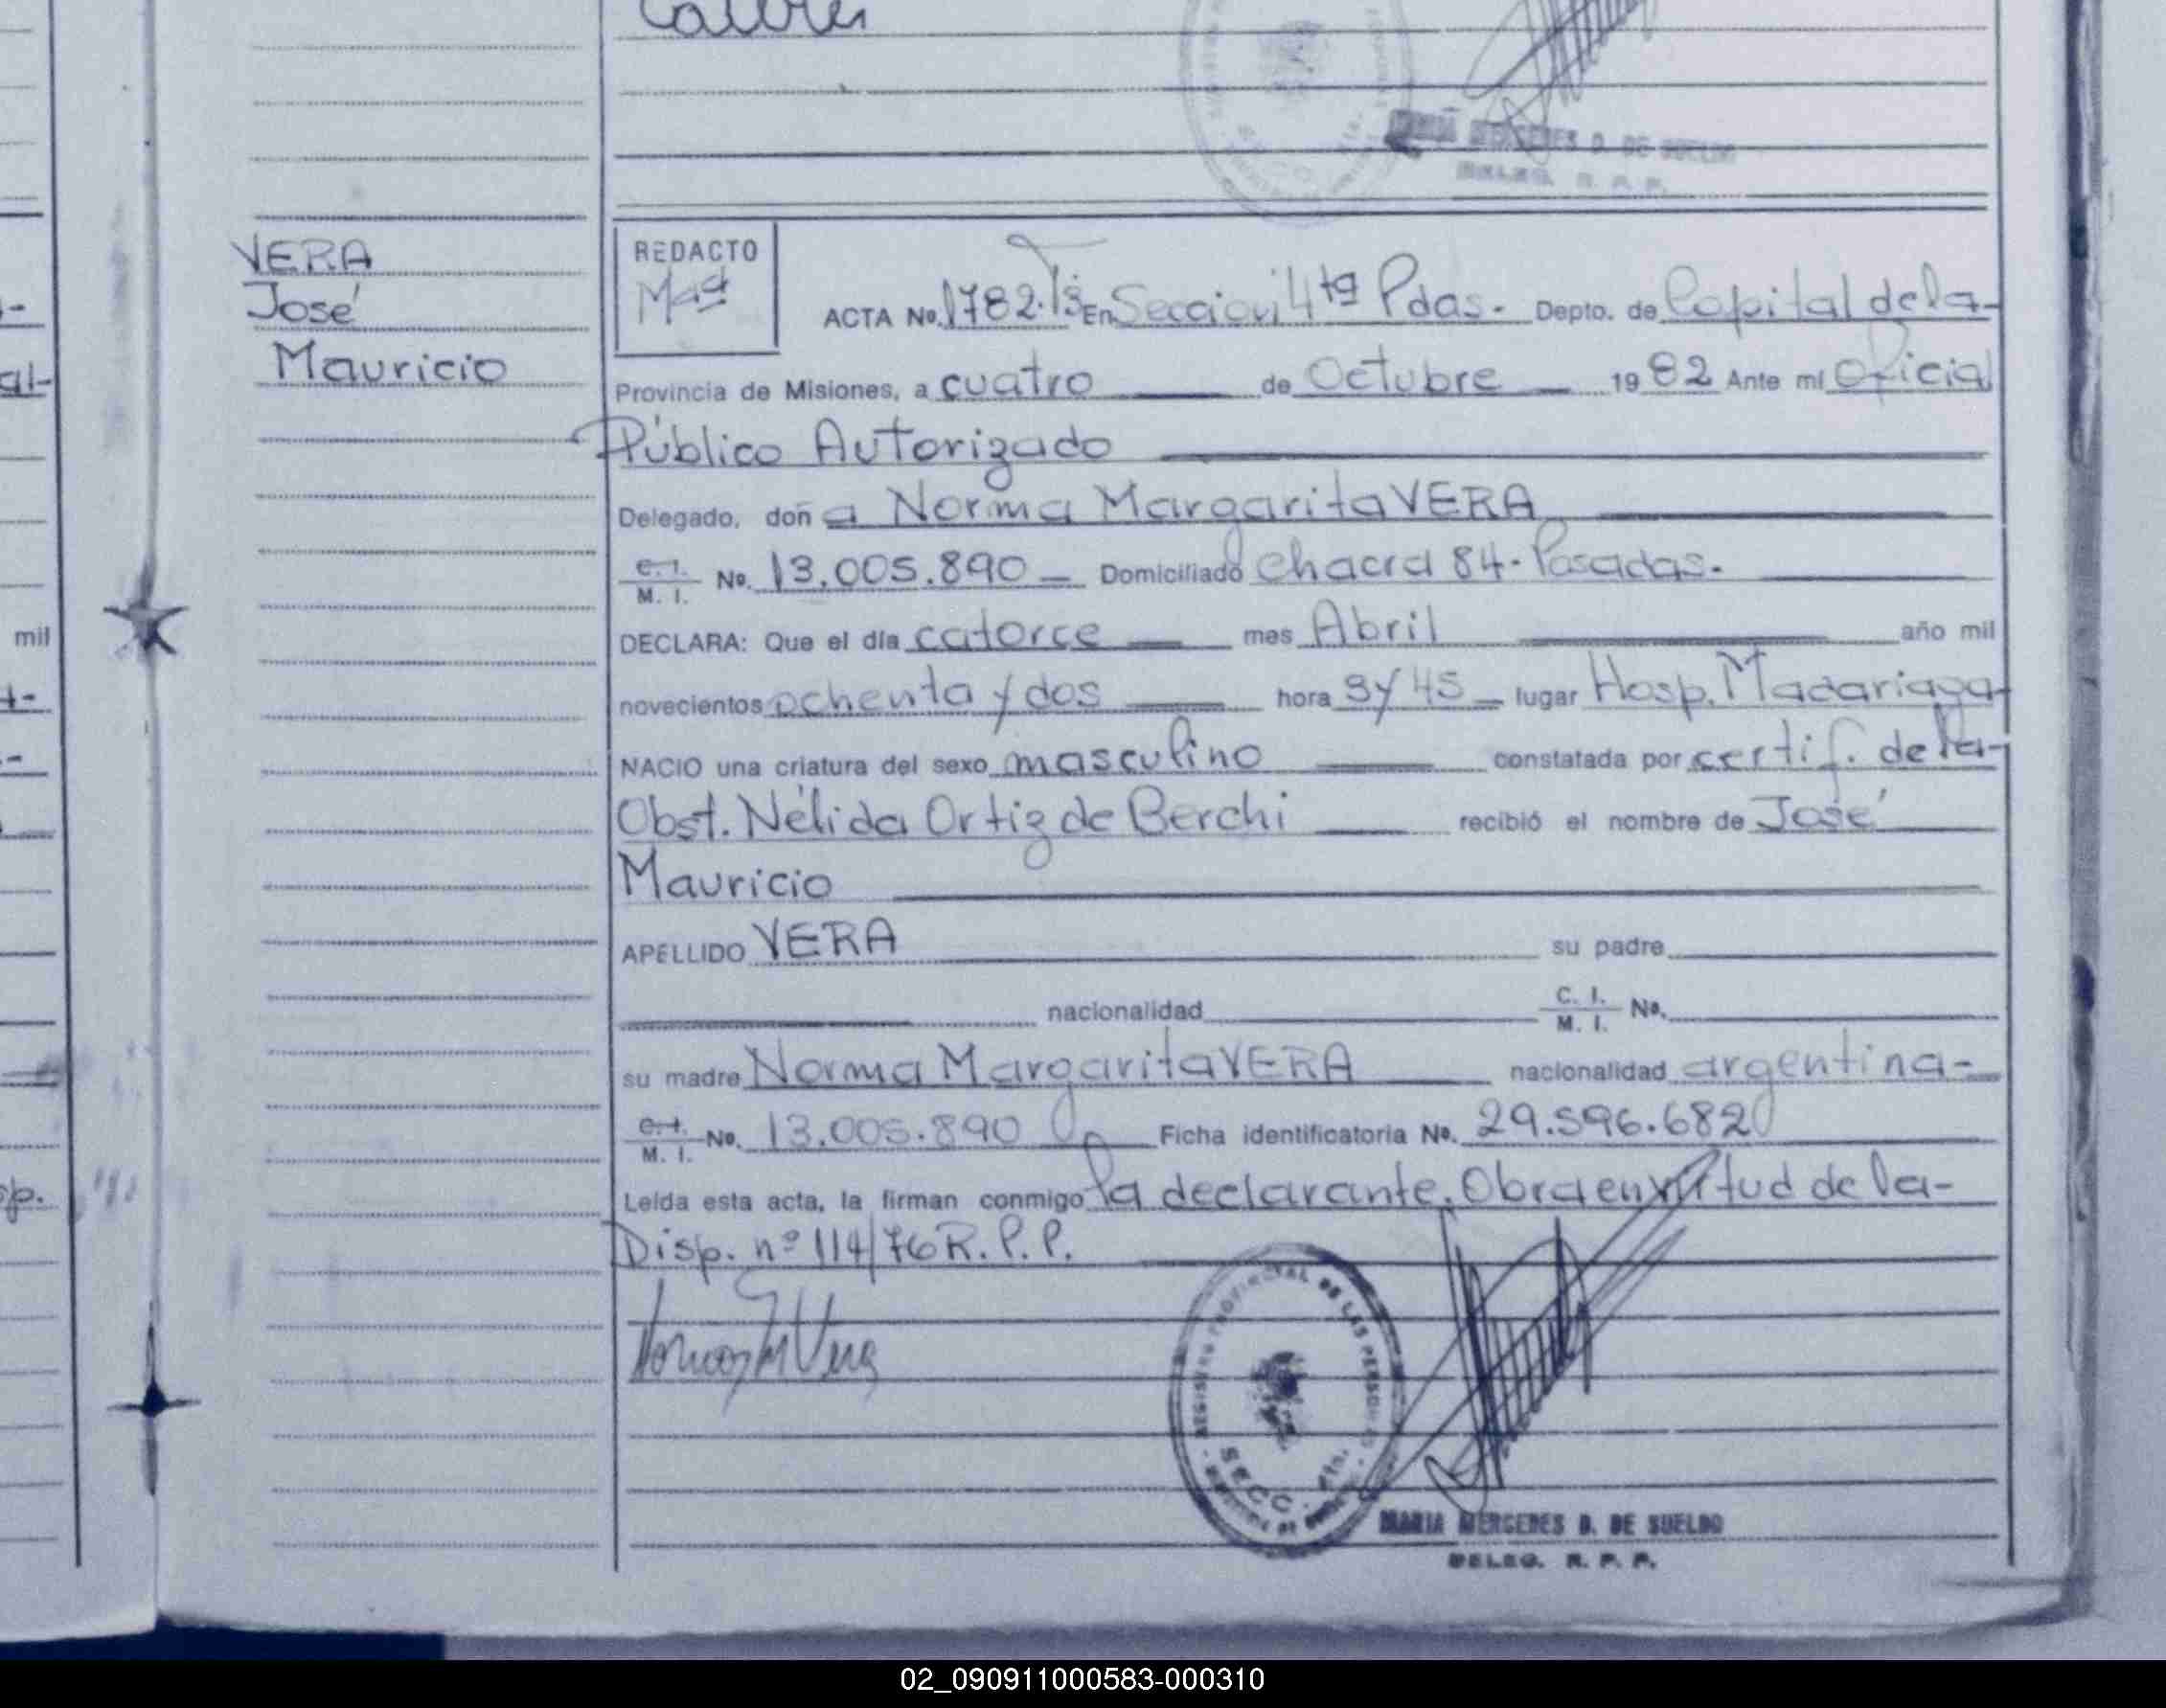 MERCEDES D. DE SUELDO
DELEG. R. P. P.
VERA
José
Mauricio
REDACTO
ACTA No. 1782. En Sección 4ta Pdas. Depto. de Capital de la-
Provincia de Misiones, a cuatro de Octubre 1982 Ante mi Oficial
Público Autorizado
Delegado, doña Norma Margarita VERA
C. I. / M. I. No. 13.005.890 Domiciliado Chacra 84. Posadas.
DECLARA: Que el día catorce mes Abril año mil
novecientos ochenta y dos hora 9 y 45 lugar Hosp. Madariaga
NACIO una criatura del sexo masculino constatada por certif. de la-
Obst. Nélida Ortiz de Berchi recibió el nombre de José
Mauricio
APELLIDO VERA su padre
nacionalidad C. I. / M. I. No.
su madre Norma Margarita VERA nacionalidad argentina-
C. I. / M. I. No. 13.005.890 Ficha identificatoria No. 29.596.682
Leída esta acta, la firman conmigo la declarante. Obra en virtud de la-
Disp. nº 114/76 R. P. P.
REGISTRO PROVINCIAL DE LAS PERSONAS
SECC. 4ta.
MARIA MERCEDES D. DE SUELDO
DELEG. R. P. P.
mil
02_090911000583-000310